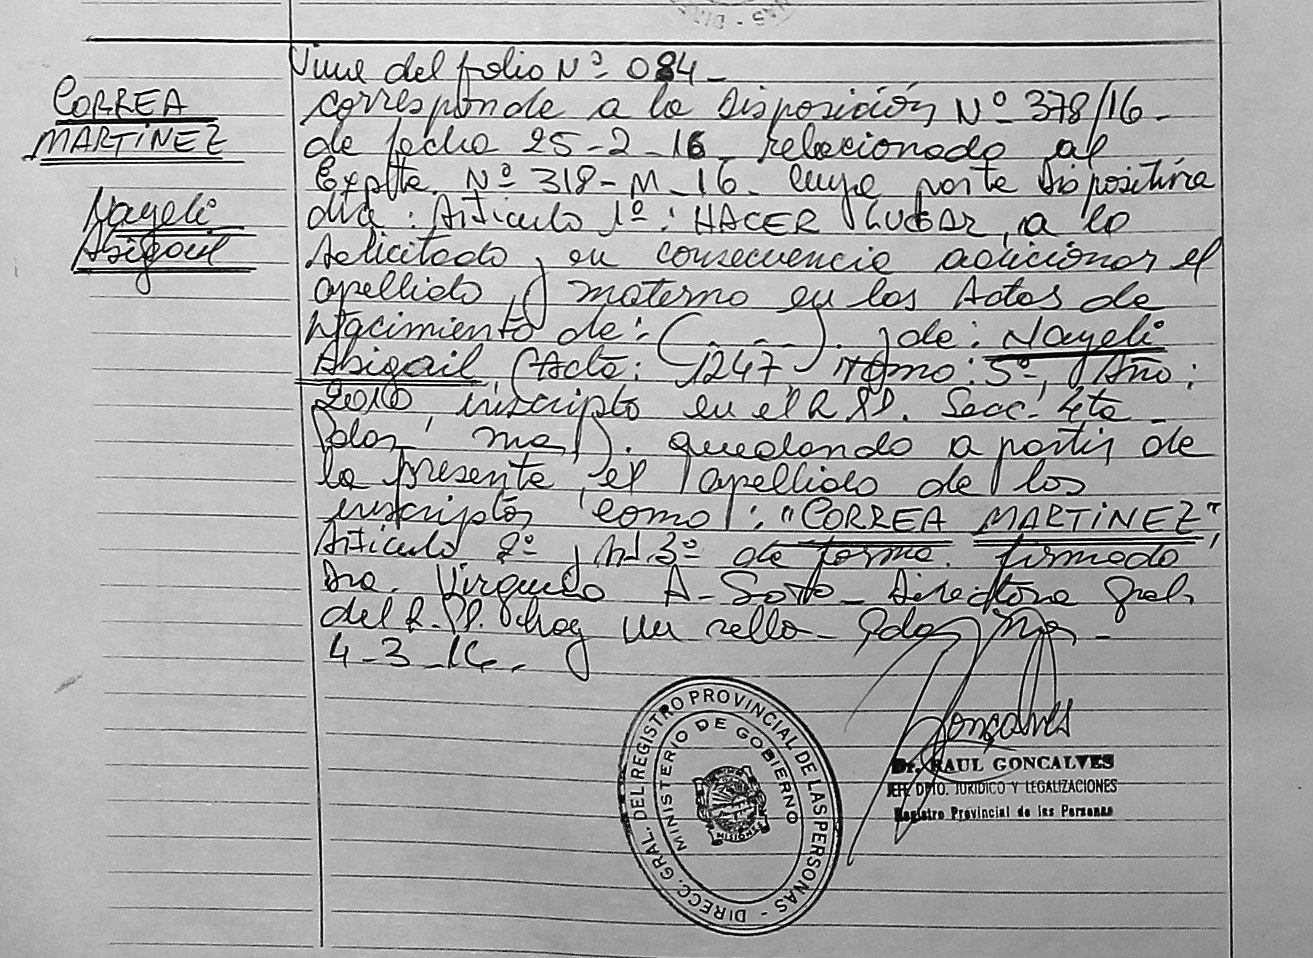 CORREA
MARTINEZ
Nayeli
Abigail
Viene del folio Nº 084-
corresponde a la Disposición Nº 378/16-
de fecha 25-2-16 relacionado al
Expte. Nº 318-M-16- cuya parte dispositiva
dice: Artículo 1º: HACER LUGAR, a lo
solicitado y en consecuencia adicionar el
apellido materno en las Actas de
Nacimiento de: (- - - -). y de: Nayeli
Abigail (Acta: 1247 Tomo: 5º, Año:
2010, inscripto en el R.P.P. Secc. 4ta
Pdas, mes). quedando a partir de
la presente, el apellido de los
inscriptos como: "CORREA MARTINEZ",
Artículo 2º y Art. 3º de forma. firmado
Dra. A- Soto- Directora Gral.
del R.P.P. hay un sello- Pdas, Mnes-
4-3-16.
DIRECC. GRAL. DEL REGISTRO PROVINCIAL DE LAS PERSONAS -
MINISTERIO DE GOBIERNO
MISIONES
Goncalves
Dr. RAUL GONCALVES
JEFE DPTO. JURIDICO Y LEGALIZACIONES
Registro Provincial de las Personas